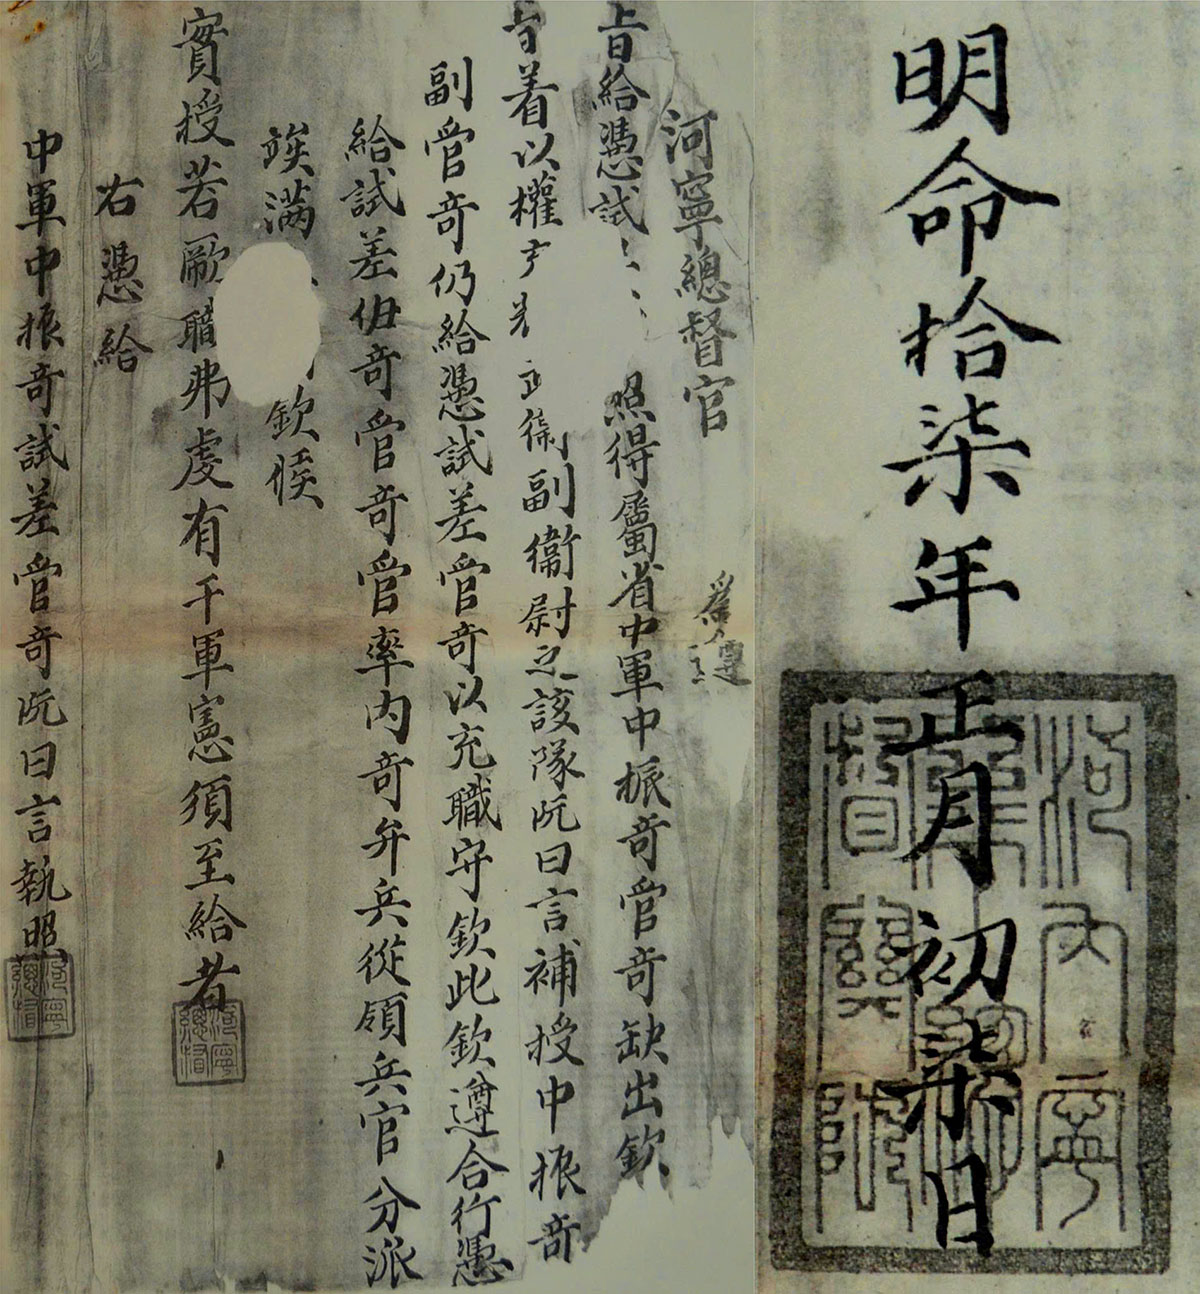 明命拾柒年正月初柒日
河寧總督官 爲遵
旨給憑試 照得屬省中軍中振奇管奇缺出欽
旨着以權 副衞尉之該隊阮曰言補授中振奇
副管奇仍給憑試差管奇以充職守欽此欽遵合行憑
給試差伹奇管奇管率内奇弁兵從領兵官分派
竢滿 欽候
實授若厥職弗虔有干軍憲須至給者
河寧總督
右憑給
中軍中振奇試差管奇阮曰言執照
河寧總督